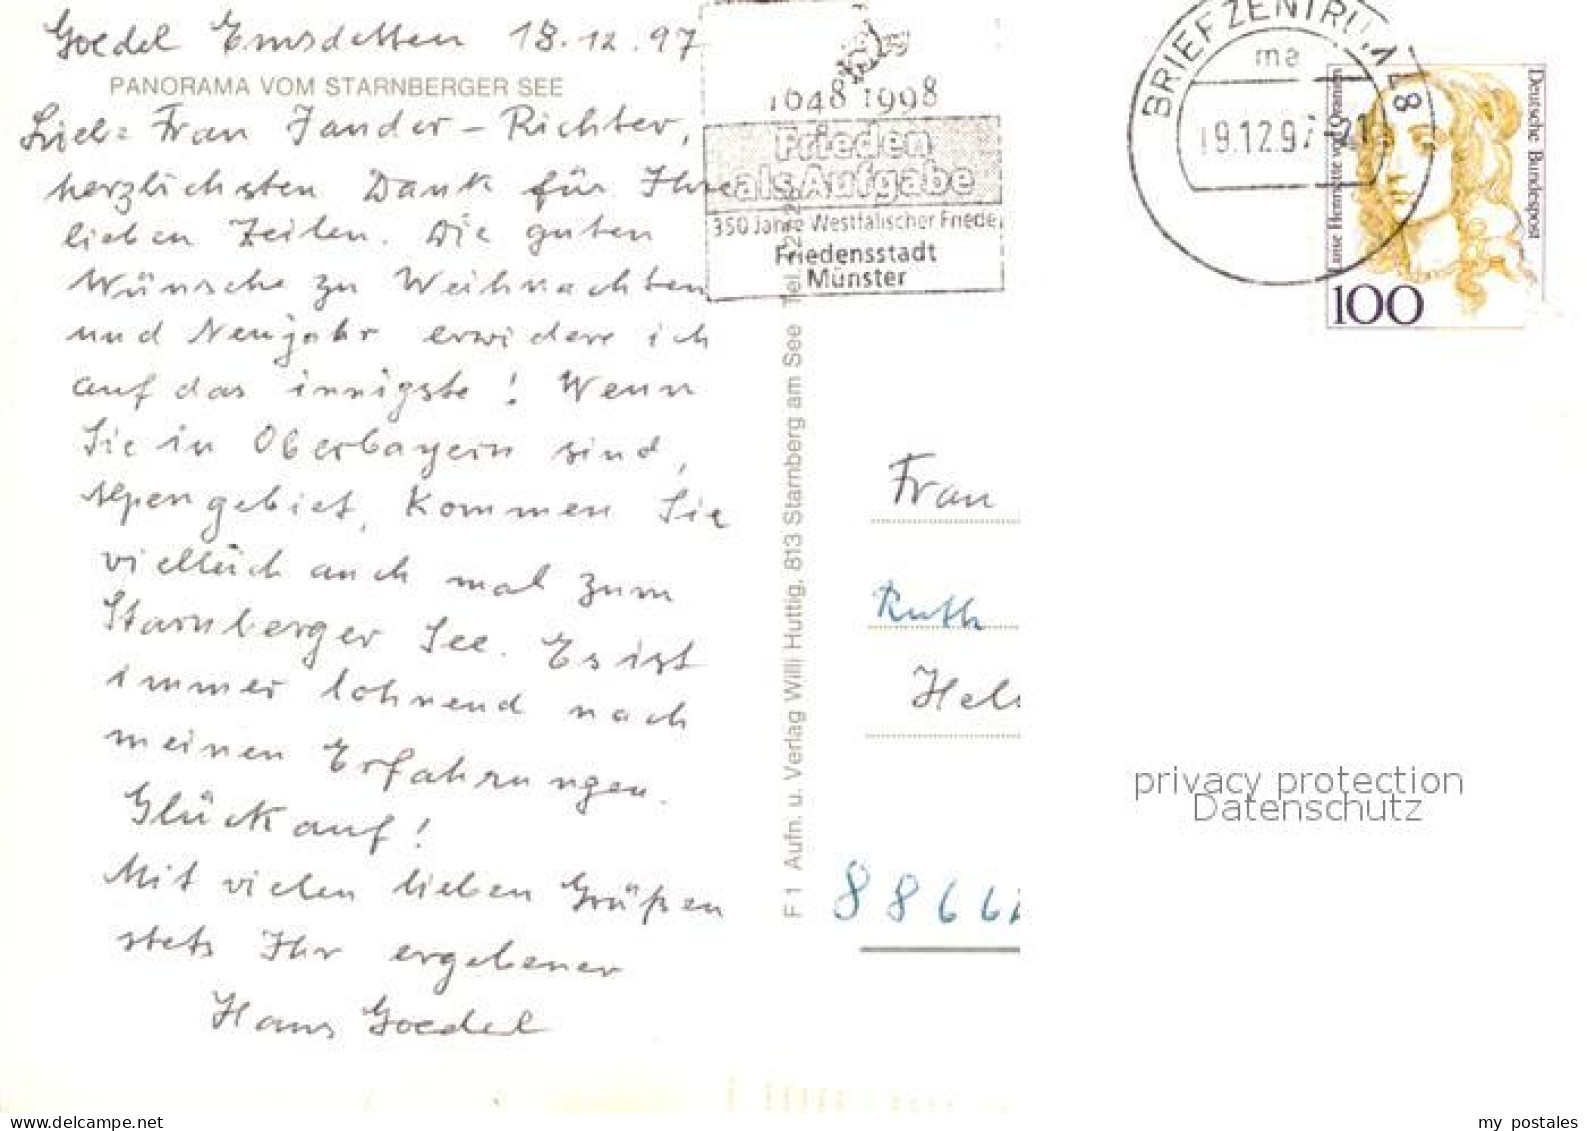 Goedel Emsdetten 18.12.97
PANORAMA VOM STARNBERGER SEE
Liebe Frau Zander-Richter,
herzlichsten Dank für Ihre
lieben Zeilen. Die guten
Wünsche zu Weihnachten
und Neujahr erwidere ich
auf das innigste! Wenn
Sie in Oberbayern sind,
Alpengebiet, kommen Sie
vielleich auch mal zum
Starnberger See. Es ist
immer lohnend nach
meinen Erfahrungen.
Glückauf!
Mit vielen lieben Grüßen
stets Ihr ergebener
Hans Goedel
1648 1998
Frieden
als Aufgabe
350 Jahre Westfälischer Friede
Friedensstadt
Münster
F 1 Aufn. u. Verlag Willi Huttig, 813 Starnberg am See Tel.
BRIEFZENTRUM 48
ma
19.12.97-21
Luise Henriette von Oranien
Deutsche Bundespost
100
Frau
Ruth
Hel
8866
privacy protection
Datenschutz
delcampe.net
my_postales